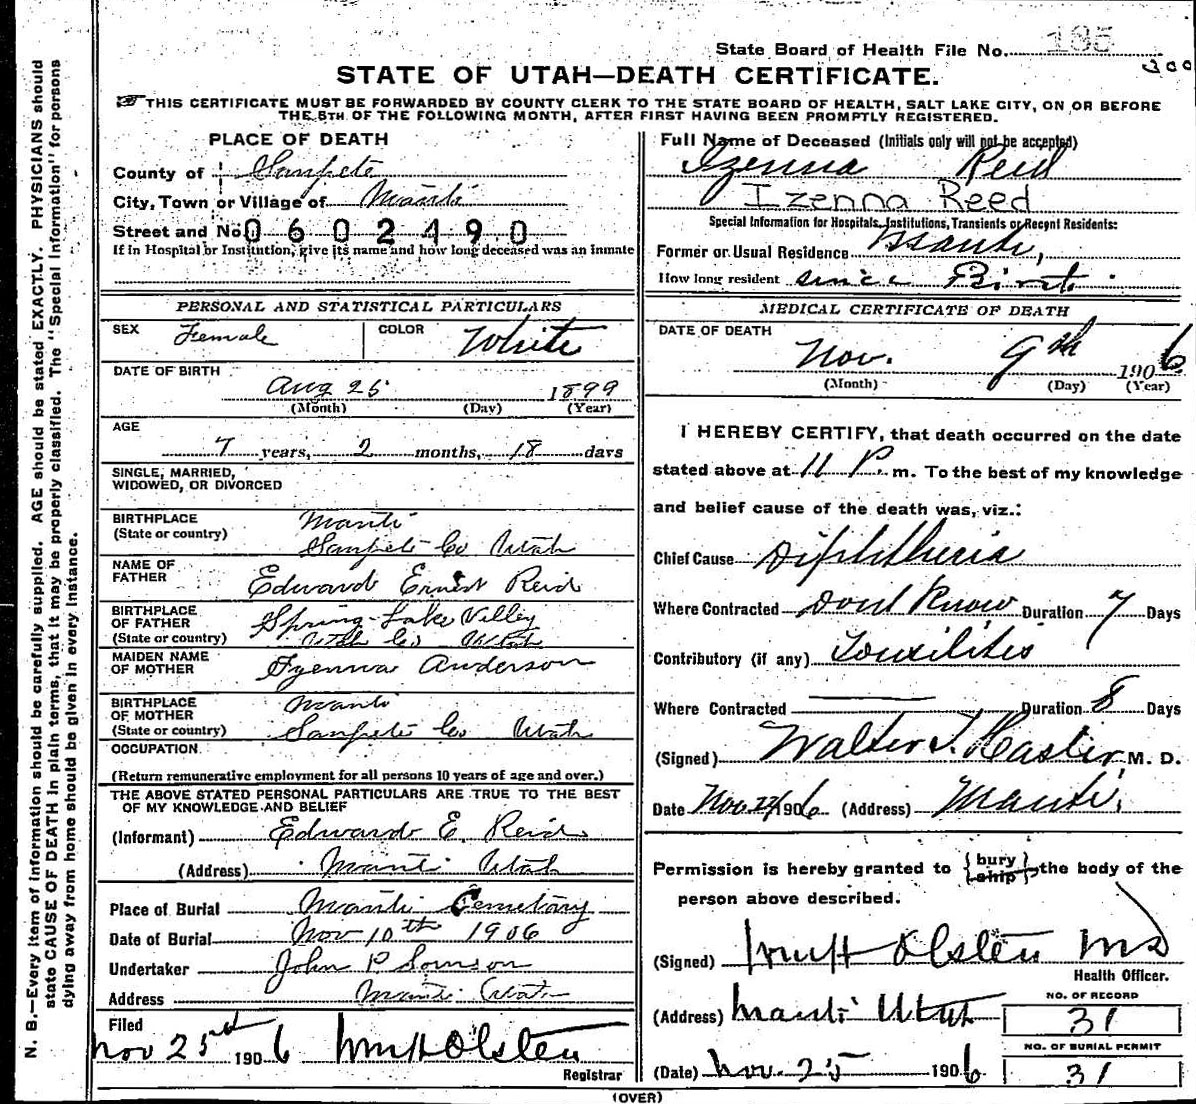 State Board of Health File No. 185
300
STATE OF UTAH—DEATH CERTIFICATE.
THIS CERTIFICATE MUST BE FORWARDED BY COUNTY CLERK TO THE STATE BOARD OF HEALTH, SALT LAKE CITY, ON OR BEFORE
THE 5TH OF THE FOLLOWING MONTH, AFTER FIRST HAVING BEEN PROMPTLY REGISTERED.
PLACE OF DEATH
County of Sanpete
City, Town or Village of Manti
Street and No. 0602490
If in Hospital or Institution, give its name and how long deceased was an inmate
PERSONAL AND STATISTICAL PARTICULARS
SEX Female COLOR White
DATE OF BIRTH Aug 25 1899
(Month) (Day) (Year)
AGE
7 years, 2 months, 18 days
SINGLE, MARRIED,
WIDOWED, OR DIVORCED
BIRTHPLACE Manti
(State or country) Sanpete Co Utah
NAME OF
FATHER Edward Ernest Reid
BIRTHPLACE
OF FATHER Spring Lake Villey
(State or country) Utah Co Utah
MAIDEN NAME
OF MOTHER Izenna Anderson
BIRTHPLACE
OF MOTHER Manti
(State or country) Sanpete Co Utah
OCCUPATION
(Return remunerative employment for all persons 10 years of age and over.)
THE ABOVE STATED PERSONAL PARTICULARS ARE TRUE TO THE BEST
OF MY KNOWLEDGE AND BELIEF
(Informant) Edward E. Reid
(Address) Manti Utah
Place of Burial Manti Cemetary
Date of Burial Nov 10th 1906
Undertaker John P
Address Manti Utah
Filed
Nov 25 1906 Wm H Olsten
Registrar
Full Name of Deceased (Initials only will not be accepted)
Izenna Reid
Izenna Reed
Special Information for Hospitals, Institutions, Transients or Recent Residents:
Former or Usual Residence Manti,
How long resident since Birth
MEDICAL CERTIFICATE OF DEATH
DATE OF DEATH
Nov. 9th 1906
(Month) (Day) (Year)
I HEREBY CERTIFY, that death occurred on the date
stated above at 11 P. m. To the best of my knowledge
and belief cause of the death was, viz.:
Chief Cause Diphtheria
Where Contracted Dont Know Duration 7 Days
Contributory (if any) Tonsilitis
Where Contracted Duration 8 Days
(Signed) Walter T. Hasler, M. D.
Date Nov 24 1906 (Address) Manti,
Permission is hereby granted to { bury ship } the body of the
person above described.
(Signed) Wm H Olsten MD
Health Officer.
(Address) Manti Utah
NO. OF RECORD
31
NO. OF BURIAL PERMIT
(Date) Nov. 25 1906 31
(OVER)
N. B.—Every item of information should be carefully supplied. AGE should be stated EXACTLY. PHYSICIANS should
state CAUSE OF DEATH in plain terms, that it may be properly classified. The "Special Information" for persons
dying away from home should be given in every instance.